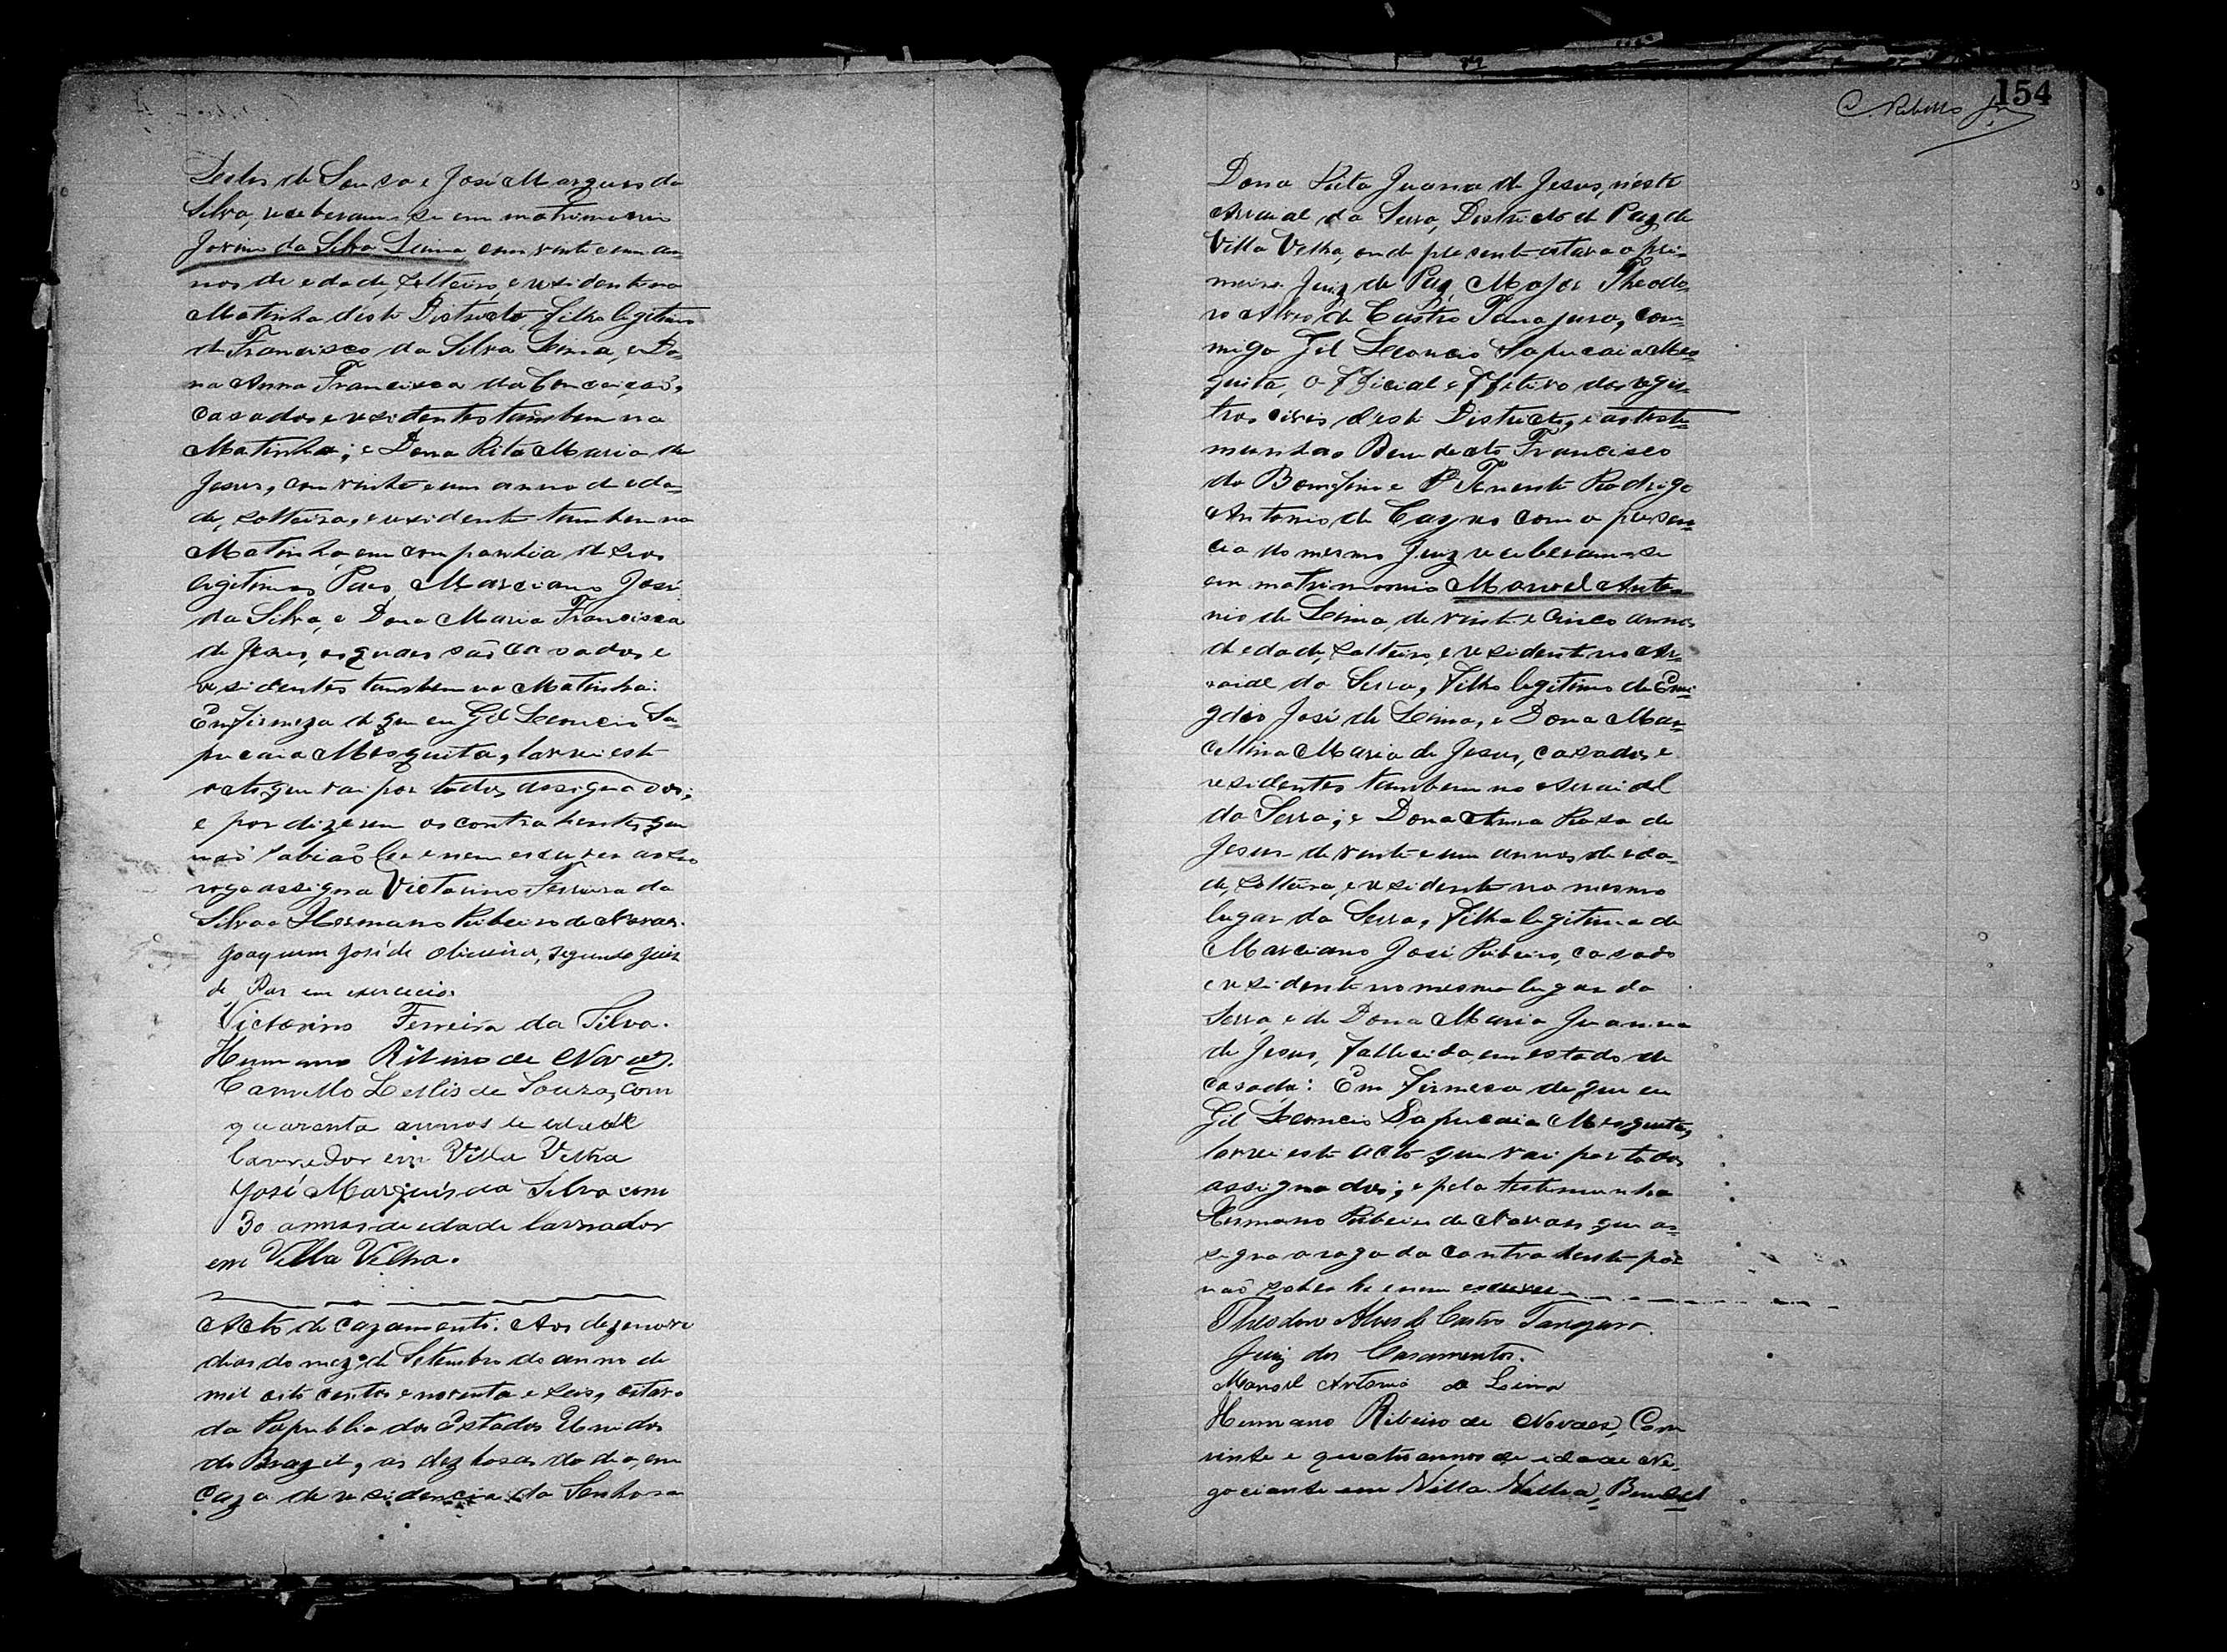 Lellis de Souza e José Marques da
Silva, receberam-se em matrimonio
Jovino da Silva Leima, com vinte e um an-
nos de edade, solteiro, e residente na
Matinha deste Districto, filho legitimo
de Francisco da Silva Leima, e Do-
na Anna Francisca da Conceição,
casados e residentes tambem na
Matinha; e Dona Rita Maria de
Jesus, com vinte e um annos de eda-
de, solteira, e residente tambem na
Matinha, em companhia de seus
legitimos Paes, Marciano José
da Silva, e Dona Maria Francisca
de Jesus, os quaes são casados e
residentes tambem na Matinha.
Em firmeza de que eu Gil Leoncio Sa-
pucaia Mesquita, lavrei este
acto, que vai por todos assignados;
e por dizerem os contrahentes que
não sabião ler e nem escrever a seo
rogo assigna Victorino Ferreira da
Silva e Hermano Ribeiro de Novaes.
Joaquim José de Oliveira, segundo Juiz
de Paz em exercicio.
Victorino Ferreira da Silva.
Hermano Ribeiro de Novaes.
Camillo Lellis de Souza, com
quarenta annos de edade
lavrador em Villa Velha
José Marques da Silva com
30 annos de edade lavrador
em Villa Velha.
Acto de cazamento. Aos dezenove
dias do mez de Setembro do anno de
mil oito centos e noventa e seis, oitavo
da Republica dos Estados Unidos
do Brazil, as dez horas do dia, em
caza de residencia da Senhora
154
C. Rebello Jr
Dona Rita Juana de Jesus, n'este
Arraial da Serra, Districto de Paz de
Villa Velha, onde presente estava o pri-
meiro Juiz de Paz Major Theodo-
ro Alves de Castro Tanajura, com-
migo Gil Leoncio Sapucaia Mes-
quita, Official effetivo dos regis-
tros civis deste Districto, e as teste-
munhas Benedicto Francisco
do Bomfim e Tenente Rodrigo
Antonio de com a presen-
cia do mesmo Juiz receberam-se
em matrimonio Manoel Anto-
nio de Leima, de vinte e cinco annos
de edade, solteiro, e residente no Ar-
raial da Serra, Filho legitimo de Emi-
gdio José de Leima, e Dona Mar-
cellina Maria de Jesus, casados e
residentes tambem no Arraial
da Serra; e Dona Anna Rosa de
Jesus de vinte e um annos de eda-
de, solteira, e residente no mesmo
lugar da Serra, Filha legitima de
Marciano José Ribeiro, casado
e residente no mesmo lugar da
Serra, e de Dona Maria Juanna
de Jesus, fallecida em estado de
casada: Em firmesa de que eu
Gil Leoncio Sapucaia Mesquita,
lavrei este acto que vai por todos
assignados; e pela testemunha
Hermano Ribeiro de Novaes que as-
signa a rogo da contrahente por
não saber ler e nem escrever
Theodoro Alves de Castro Tanajura.
Juiz dos Casamentos.
Manoel Antonio de Leima
Hermano Ribeiro de Novaes, Com
vinte e quatro annos de idade Ne-
gociante em Villa Velha, Bened